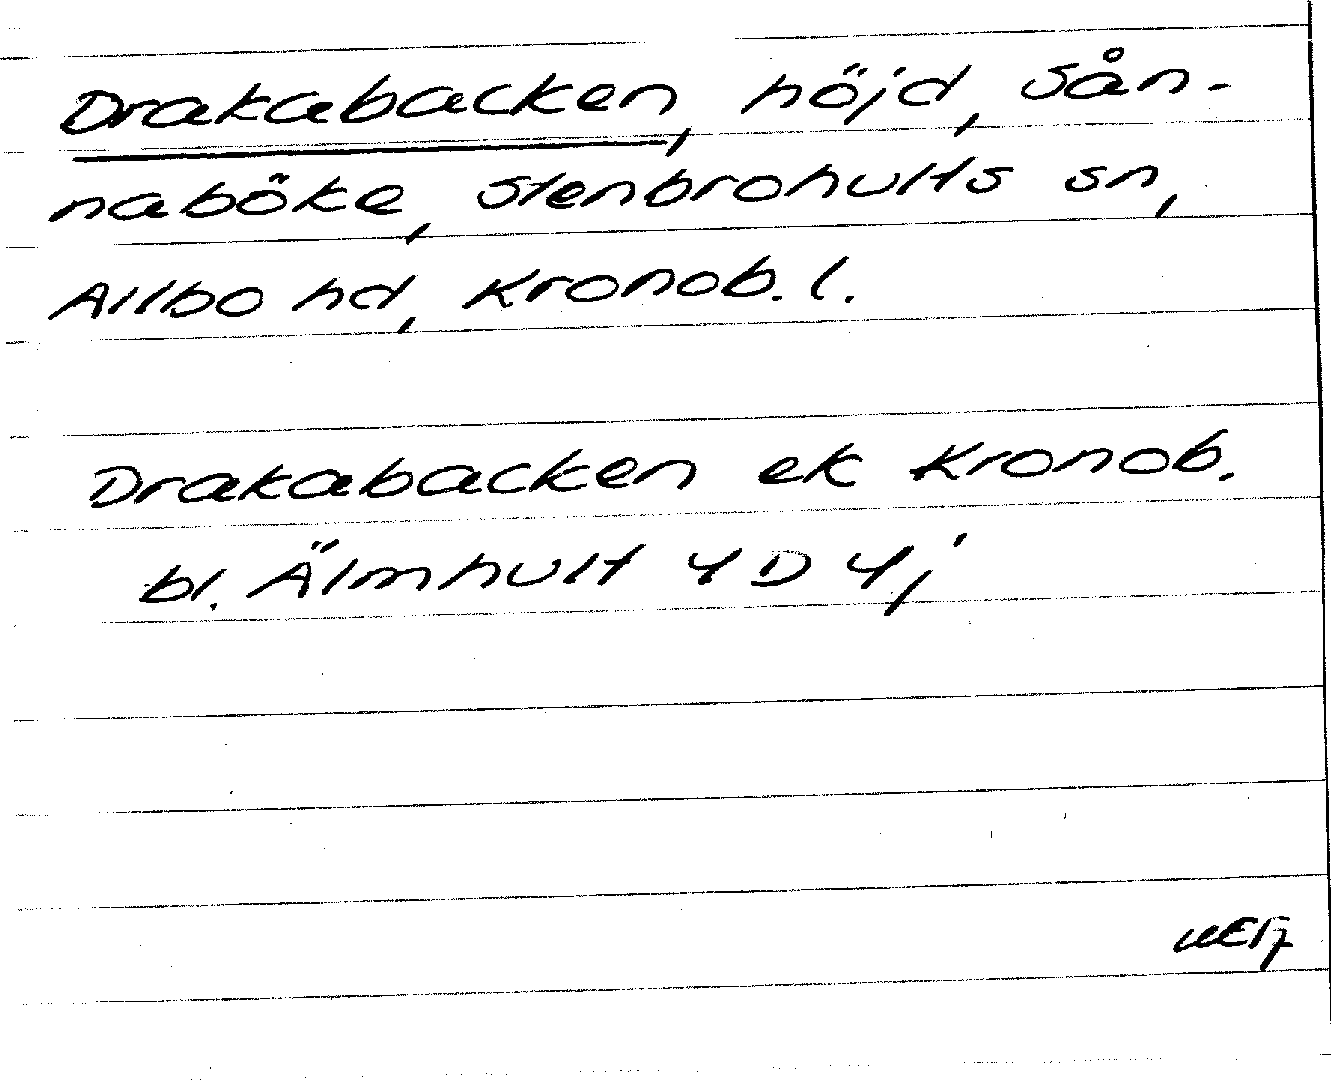 Drakabacken, höjd, Sån-
naböke, Stenbrohults sn,
Allbo hd, Kronob. l.
Drakabacken ek Kronob.
bl. Älmhult 4 D 4 j